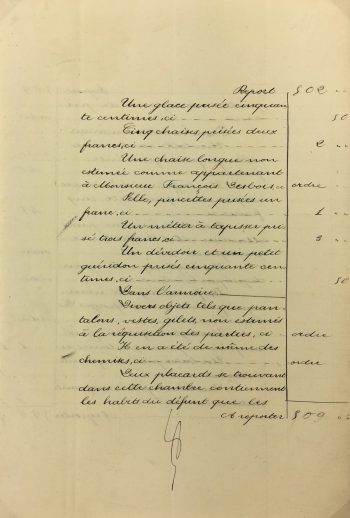 Report 802 "
Une glace prisée cinquan
te centimes, ci 50
Cinq chaises prisées deux
francs, ci 2 "
Une chaise longue non
estimée comme appartenant
à Monsieur François Lesbois, ci ordre
Pelle, pincettes prisées un
franc, ci 1 "
Un métier à tapisser pri
sé trois francs, ci 3 "
Un dévidoir et un petit
guéridon prisés cinquante cen
times, ci 50
Dans l'armoire
Divers objets tels que pan
talons, vestes, gilets, non estimés
à la réquisition des parties, ci ordre
Il en a été de même des
chemises, ci ordre
Deux placards se trouvant
dans cette chambre contiennent
les habits du défunt que les
A reporter 809 "